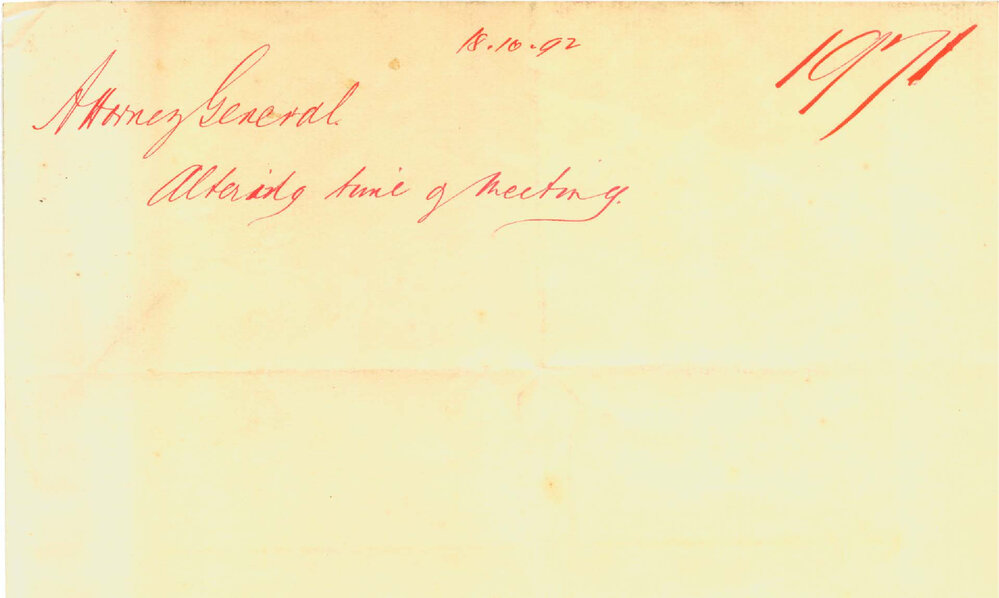 18.10.92
1971
Attorney General.
Altering time of Meeting.